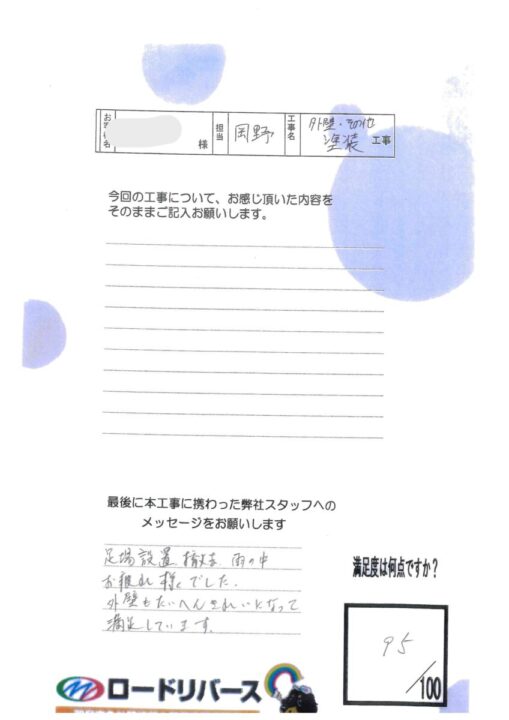 お客様名 様 担当 岡野 工事名 外壁・その他 塗装 工事
今回の工事について、お感じ頂いた内容を
そのままご記入お願いします。
最後に本工事に携わった弊社スタッフへの
メッセージをお願いします
足場設置 撤去 雨の中
お疲れ様でした。
外壁もたいへんきれいになって
満足しています。
満足度は何点ですか？
95
/100
ロードリバース